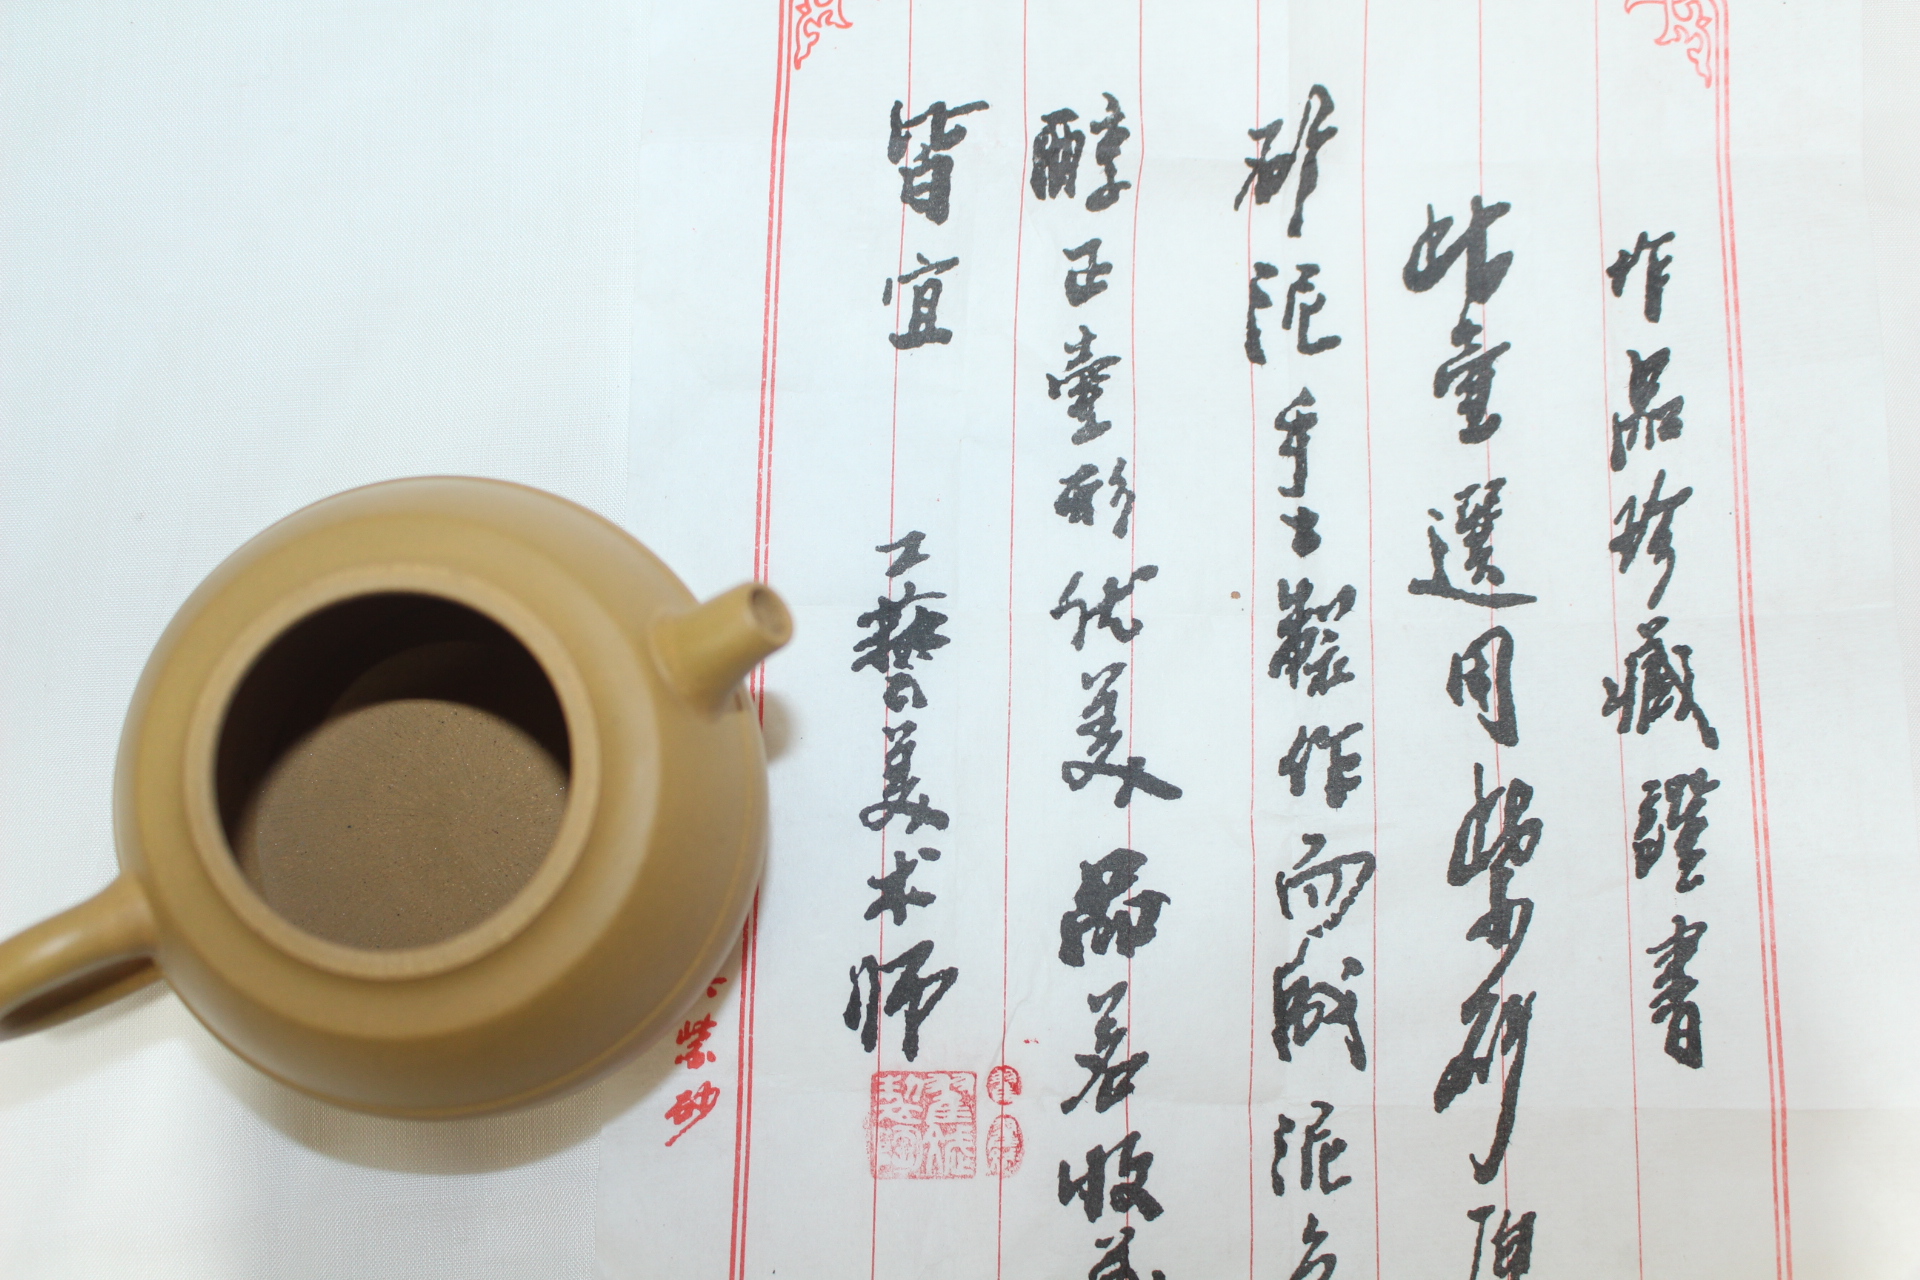 作品珍藏證書
此壺選用紫砂原
砂泥手工製作而成泥色
醇正壺形优美品茗收藏
皆宜
工藝美术師
紫砂